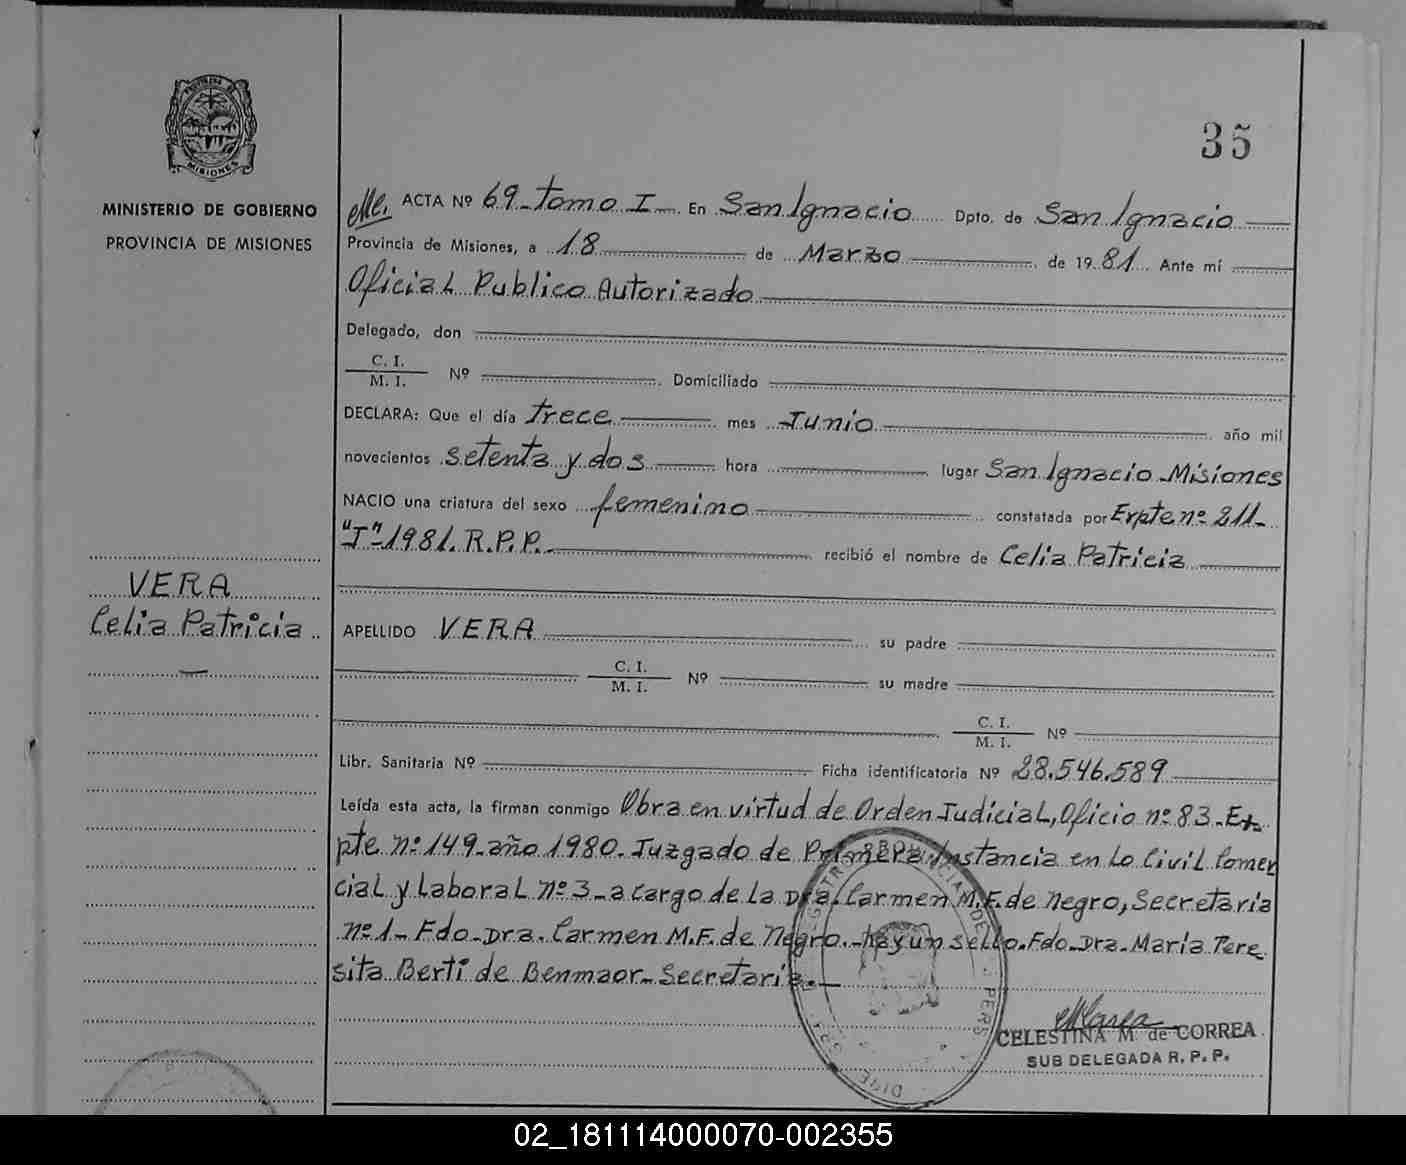 35
MISIONES
MINISTERIO DE GOBIERNO
PROVINCIA DE MISIONES
ACTA Nº 69-Tomo I En San Ignacio Dpto. de San Ignacio
Provincia de Misiones, a 18 de Marzo de 1981. Ante mí
Oficial Publico Autorizado
Delegado, don
C. I.
M. I. Nº Domiciliado
DECLARA: Que el día trece mes Junio año mil
novecientos setenta y dos hora lugar San Ignacio-Misiones
NACIO una criatura del sexo femenino constatada por Expte nº 211-
"J"-1981. R.P.P. recibió el nombre de Celia Patricia
VERA
Celia Patricia
APELLIDO VERA su padre
C. I.
M. I. Nº su madre
C. I.
M. I. Nº
Libr. Sanitaria Nº Ficha identificatoria Nº 28.546.589
Leída esta acta, la firman conmigo Obra en virtud de Orden Judicial, Oficio nº 83-Ex-
pte nº 149-año 1980. Juzgado de Primera Instancia en lo Civil Comer
cial y Laboral nº 3-a cargo de la Dra. Carmen M.F. de Negro, Secretaria
nº 1- Fdo-Dra. Carmen M.F. de Negro.-hay un sello. Fdo-Dra. María Tere
sita Berti de Benmaor-Secretaria.-
CELESTINA M. de CORREA
SUB DELEGADA R. P. P.
02_181114000070-002355